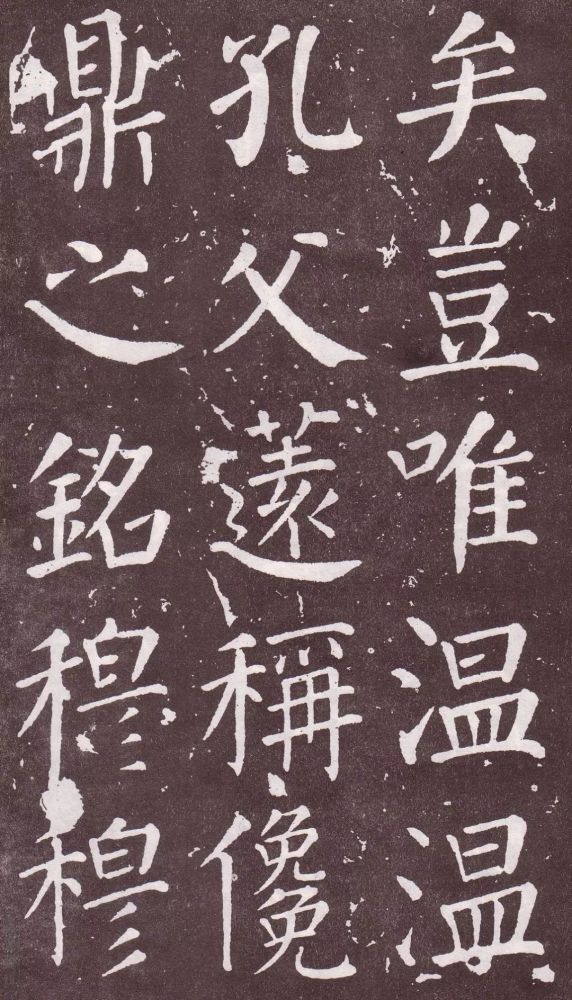 矣豈唯温温
孔父薳稱儳
鼎之銘穆穆